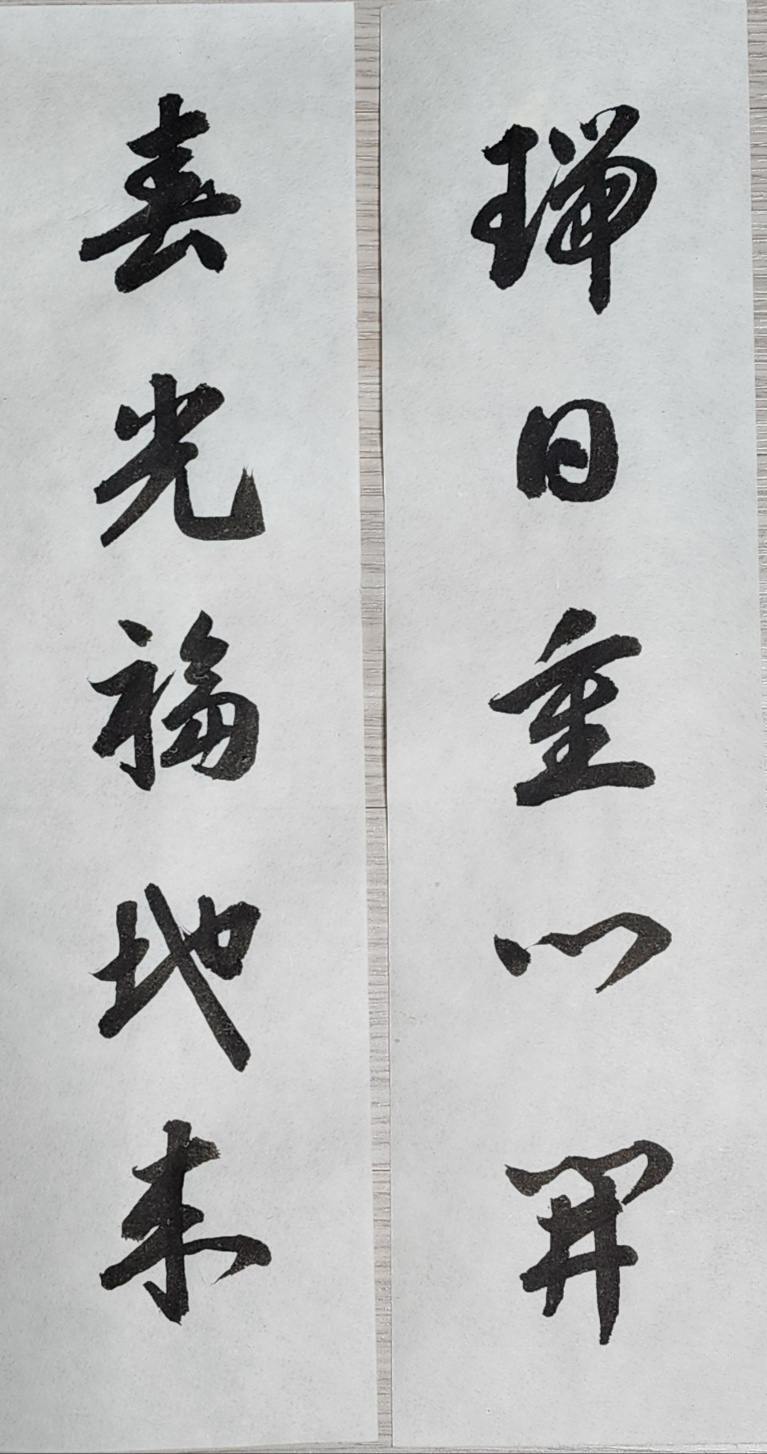 瑞日重門開
春光福地来